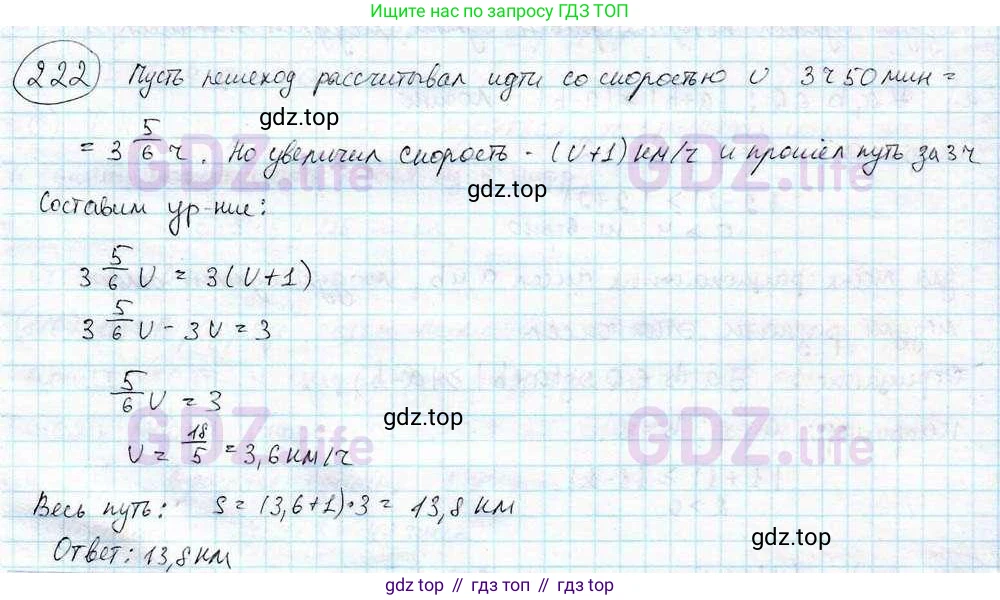 Ищите по запросу ГДЗ ТОП
222 Пусть пешеход рассчитывал идти со скоростью v 3ч 50 мин =
gdz.top
= 3 5/6 ч. Но увеличил скорость - (v+1) км/ч и прошел путь за 3ч
gdz.top
GDZ.life GDZ.life
Составим ур-ние:
3 5/6 v = 3(v+1)
3 5/6 v - 3v = 3
5/6 v = 3
gdz.top
v = 18/5 = 3,6 км/ч
GDZ.life GDZ.life
Весь путь: S = (3,6+1)·3 = 13,8 км
gdz.top
Ответ: 13,8 км
gdz.top // гдз топ // gdz top // гдз.top